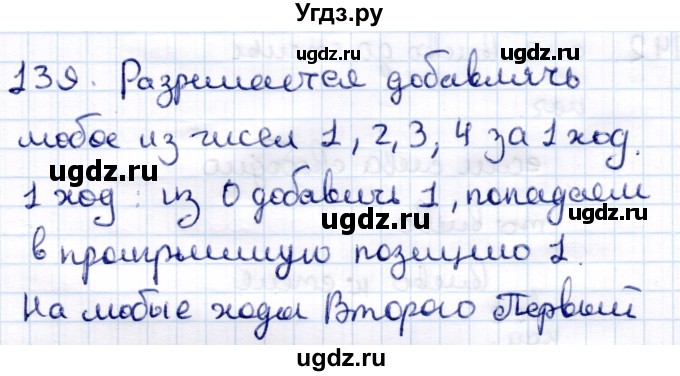 Угдз.ру
139. Разрешается добавлять
любое из чисел 1, 2, 3, 4 за 1 ход.
1 ход: из 0 добавить 1, попадаем
в проигрышную позицию 1.
На любые ходы Второго Первый
ugdz.ru
ugdz.ru
ugdz.ru
ugdz.ru
ugdz.ru
ugdz.ru
ugdz.ru
ugdz.ru